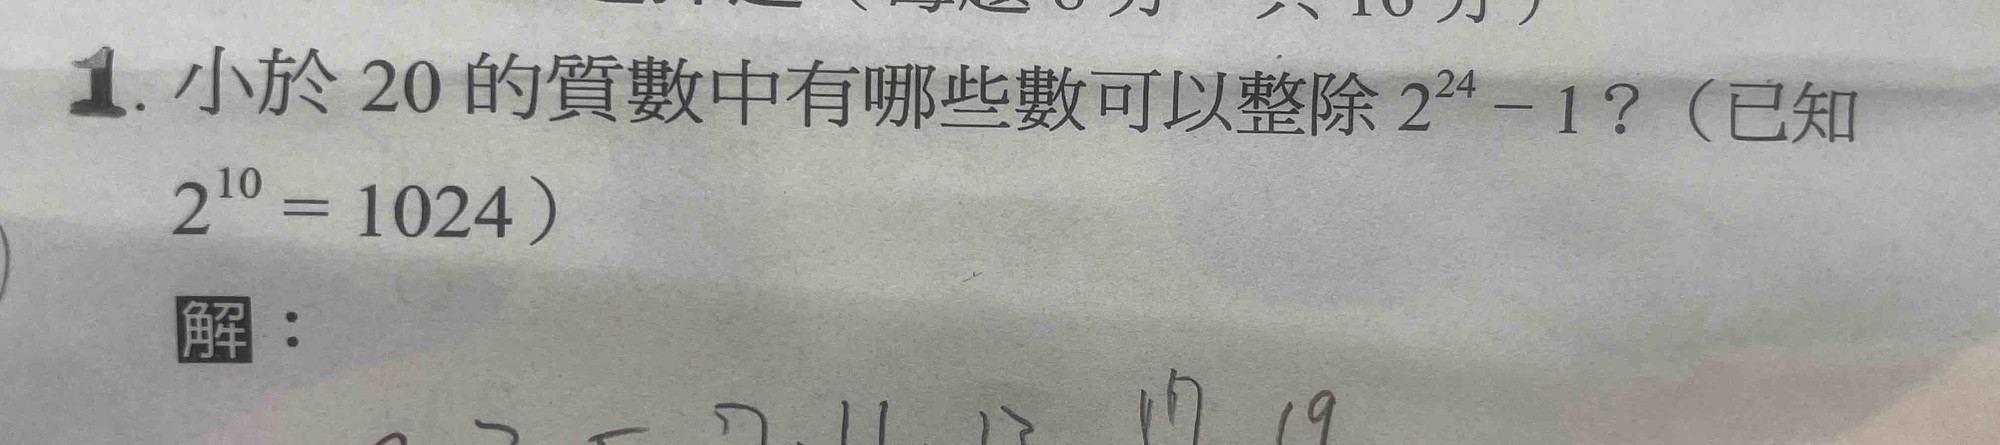 （每題 8 分，共 16 分）
1. 小於 20 的質數中有哪些數可以整除 2²⁴ − 1？（已知
2¹⁰ = 1024）
解：
7 . 11 . 13 17 19